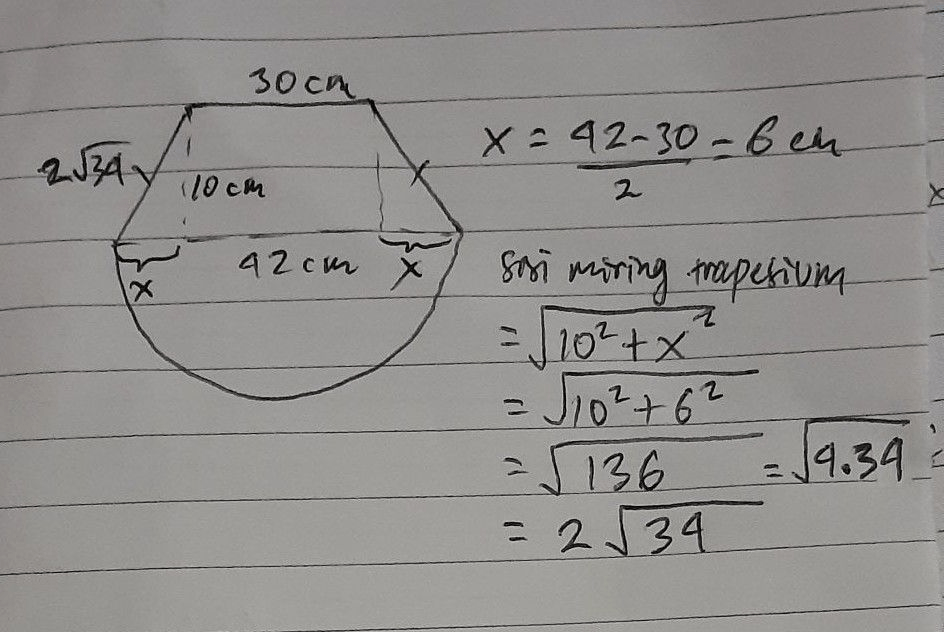 30 cm
2√34
10 cm
42 cm
x
x
x = 42-30 = 6 cm
2
sisi miring trapesium
= √10² + x²
= √10² + 6²
= √136 = √4.34
= 2√34